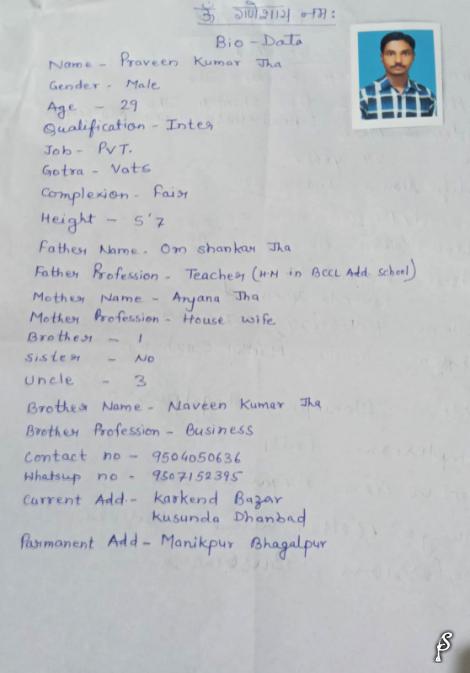 ॐ गणेशाय नमः
Bio-Data
Name - Praveen Kumar Jha
Gender - Male
Age - 29
Qualification - Inter
Job - PVT.
Gotra - Vats
Complexion - Fair
Height - 5'7
Father Name - Om shankar Jha
Father Profession - Teacher (H.N in BCCL Add. School)
Mother Name - Anjana Jha
Mother Profession - House wife
Brother - 1
Sister - No
Uncle - 3
Brother Name - Naveen Kumar Jha
Brother Profession - Business
Contact no - 9504050636
Whatsup no - 9507152395
Current Add - Karkend Bazar
Kusunda Dhanbad
Parmanent Add - Manikpur Bhagalpur